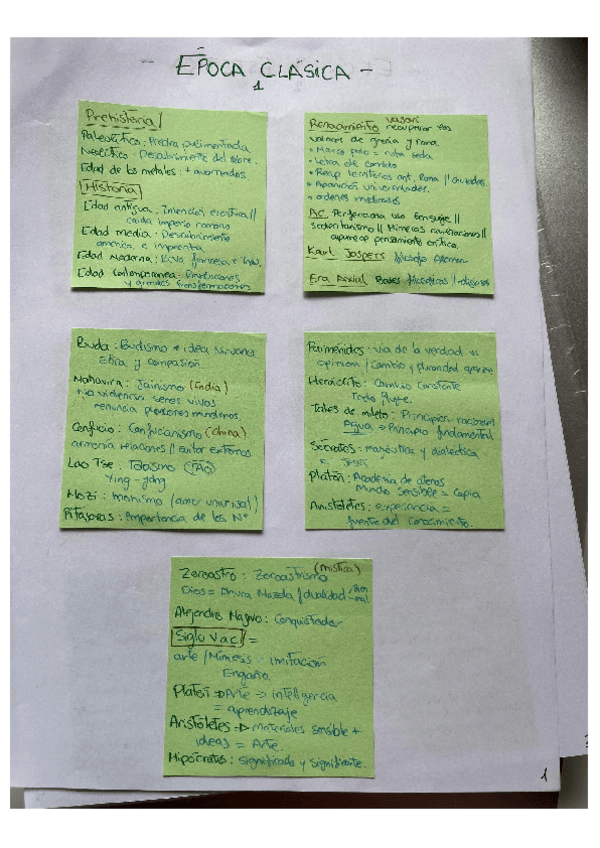 - EPOCA CLÁSICA -
1
Prehistoria
Paleolítico: Piedra pulimentada
Neolítico: Descubrimiento del sobre.
Edad de los metales: + avanzados
Historia
Edad antigua: Invención escritura //
caída imperio romano
Edad media: Descubrimiento
américa e imprenta
Edad Moderna: francesa e
Edad Contemporanea: Revoluciones
y grandes transformaciones
Renacimiento vasari recuperar los
valores de grecia y roma.
• Marco polo = ruta seda
• Letra de cambio
• Recup territorios ant. Roma // ciudades
• Aparición universidades.
• ordenes
AC Perfecciona uso lenguaje //
sedentarismo // Primeras civilizaciones //
aparece pensamiento crítico.
Karl Jaspers filosofo Aleman
Era Axial Bases filosóficas // religiosas
Buda: Budismo + idea nirvana
Etica y compasión.
Mahavira: Jainismo (India)
No violencia seres vivos
renuncia placeres mundanos.
Confucio: Confucianismo (china)
armonía relaciones // evitar extremos
Lao Tse: Taoismo (TAO)
Ying-yang
Mozi: mohismo (amor universal)
Pitágoras: Importancia de los Nº
Parménides: via de la verdad vs
opinion / cambio y pluralidad
Heraclito: Cambio Constante
Todo fluye.
Tales de mileto: Principios
Agua = Principio fundamental
Sócrates: mayéutica y dialéctica
Platón: Academia de atenas
Mundo sensible = Copia
Aristóteles: experiencia =
fuente del conocimiento.
Zoroastro: Zoroastrismo (mistica)
Dios = Ahura Mazda / dualidad - bien
- mal
Alejandro Magno: Conquistador
Siglo V a.C =
arte / Mímesis = imitación
Engaño.
Platón => Arte => inteligencia
= aprendizaje
Aristóteles => materiales sensible +
ideas = Arte.
Hipócrates: significado y significante.
1